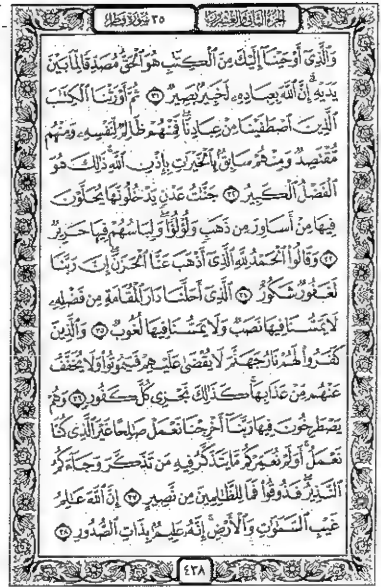 ٣٥ سورة فاطر
الجزء الثاني والعشرون
وَالَّذِي أَوْحَيْنَا إِلَيْكَ مِنَ الْكِتَابِ هُوَ الْحَقُّ مُصَدِّقًا لِمَا بَيْنَ
يَدَيْهِ إِنَّ اللَّهَ بِعِبَادِهِ لَخَبِيرٌ بَصِيرٌ ٣١ ثُمَّ أَوْرَثْنَا الْكِتَابَ
الَّذِينَ اصْطَفَيْنَا مِنْ عِبَادِنَا فَمِنْهُمْ ظَالِمٌ لِنَفْسِهِ وَمِنْهُمْ
مُقْتَصِدٌ وَمِنْهُمْ سَابِقٌ بِالْخَيْرَاتِ بِإِذْنِ اللَّهِ ذَلِكَ هُوَ
الْفَضْلُ الْكَبِيرُ ٣٢ جَنَّاتُ عَدْنٍ يَدْخُلُونَهَا يُحَلَّوْنَ
فِيهَا مِنْ أَسَاوِرَ مِنْ ذَهَبٍ وَلُؤْلُؤًا وَلِبَاسُهُمْ فِيهَا حَرِيرٌ
٣٣ وَقَالُوا الْحَمْدُ لِلَّهِ الَّذِي أَذْهَبَ عَنَّا الْحَزَنَ إِنَّ رَبَّنَا
لَغَفُورٌ شَكُورٌ ٣٤ الَّذِي أَحَلَّنَا دَارَ الْمُقَامَةِ مِنْ فَضْلِهِ
لَا يَمَسُّنَا فِيهَا نَصَبٌ وَلَا يَمَسُّنَا فِيهَا لُغُوبٌ ٣٥ وَالَّذِينَ
كَفَرُوا لَهُمْ نَارُ جَهَنَّمَ لَا يُقْضَى عَلَيْهِمْ فَيَمُوتُوا وَلَا يُخَفَّفُ
عَنْهُمْ مِنْ عَذَابِهَا كَذَلِكَ نَجْزِي كُلَّ كَفُورٍ ٣٦ وَهُمْ
يَصْطَرِخُونَ فِيهَا رَبَّنَا أَخْرِجْنَا نَعْمَلْ صَالِحًا غَيْرَ الَّذِي كُنَّا
نَعْمَلُ أَوَلَمْ نُعَمِّرْكُمْ مَا يَتَذَكَّرُ فِيهِ مَنْ تَذَكَّرَ وَجَاءَكُمُ
النَّذِيرُ فَذُوقُوا فَمَا لِلظَّالِمِينَ مِنْ نَصِيرٍ ٣٧ إِنَّ اللَّهَ عَالِمُ
غَيْبِ السَّمَاوَاتِ وَالْأَرْضِ إِنَّهُ عَلِيمٌ بِذَاتِ الصُّدُورِ ٣٨
٤٣٨